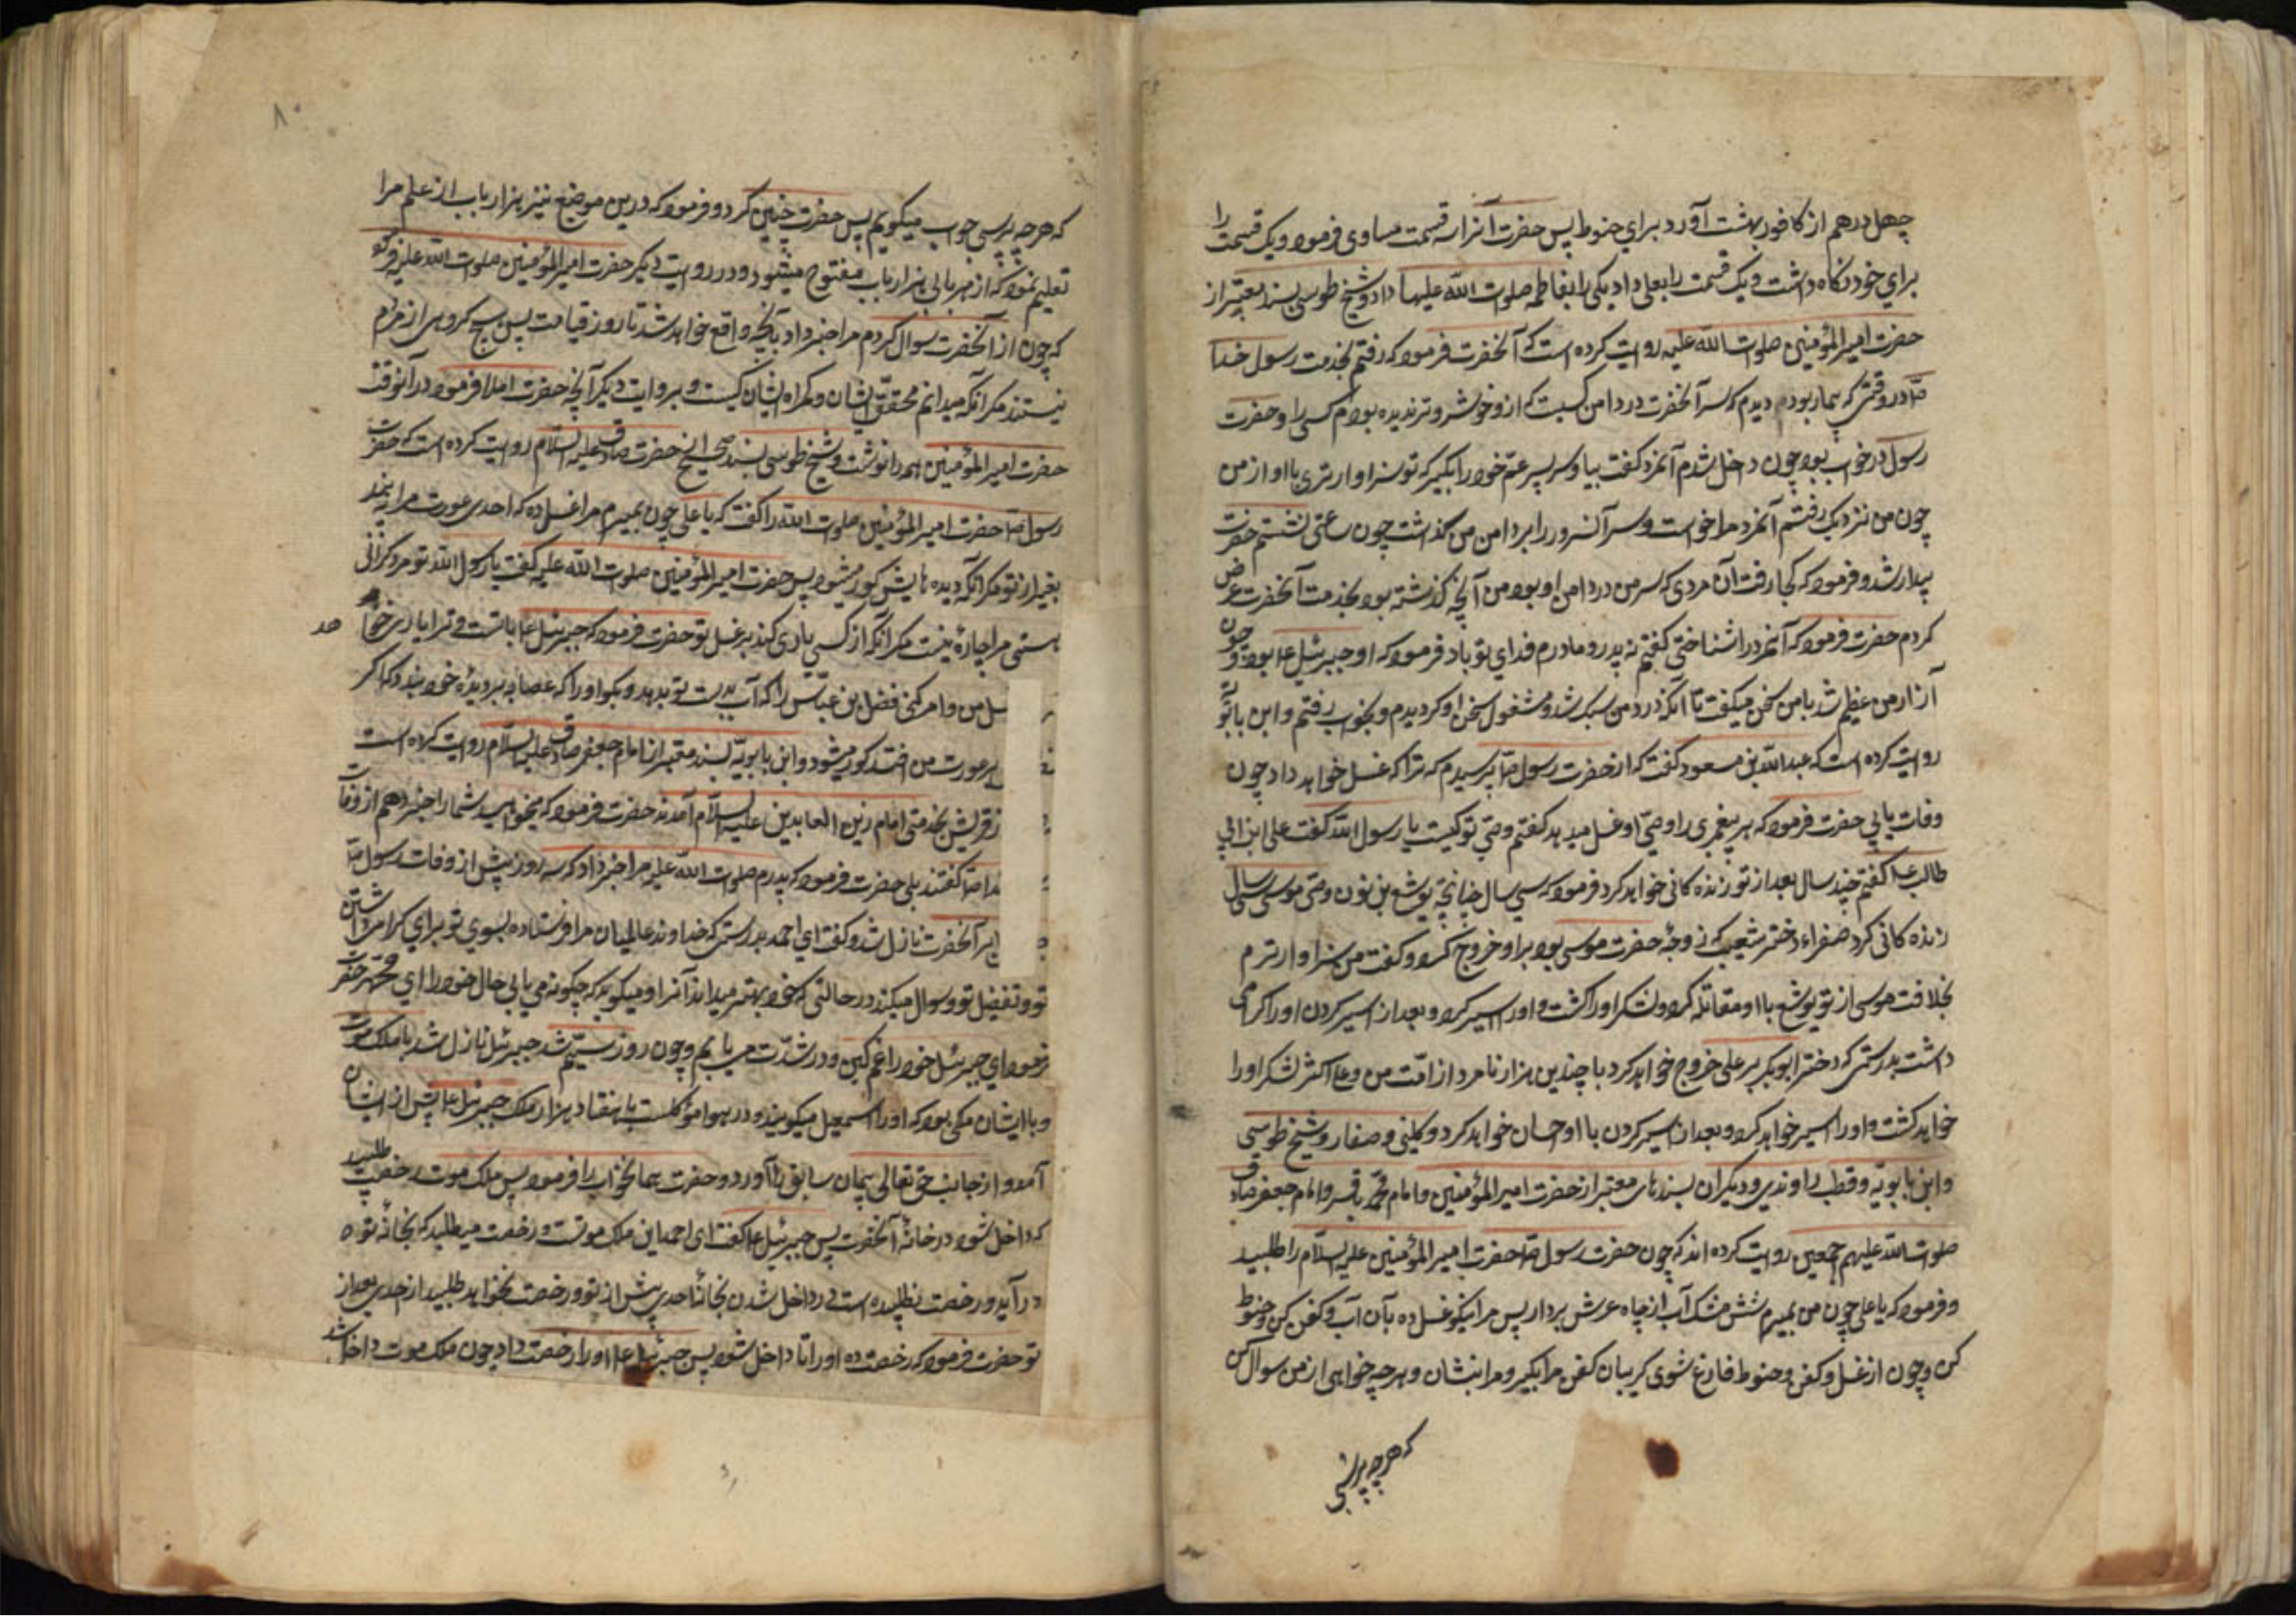 چهل درهم از کافور بهشت آورد برای حنوط پس حضرت آنرا سه قسمت مساوی فرمود و یک قسمت را
برای خود نگاه داشت و یک قسمت را بعلی داد و یکی را بفاطمه صلوات الله علیها داد و شیخ طوسی بسند معتبر از
حضرت امیر المؤمنین صلوات الله علیه روایت کرده است که آنحضرت فرمود که رفتم بخدمت رسول خدا
صلا در وقتی که بیمار بود دیدم که سر آنحضرت در دامن کسیت که از و خوشروتر ندیده بودم کسی را و حضرت
رسول در خواب بود چون داخل شدم آنمرد گفت بیا و سر پسر عم خود را بگیر که تو سزاوارتری باو از من
چون من نزدیک رفتم آنمرد برخواست و سر آنسرور را بر دامن من گذاشت چون ساعتی نشستم حضرت
بیدار شد و فرمود که کجا رفت آن مردی که سر من در دامن او بود من آنچه گذشته بود بخدمت آنحضرت عرض
کردم حضرت فرمود که آنمرد را شناختی گفتم نه پدر و مادرم فدای تو باد فرمود که او جبرئیل ع بود و چون
آزار من عظیم شد با من سخن میگفت تا آنکه درد من سبک شد و مشغول سخن او گردیدم و بخواب رفتم و ابن بابویه
روایت کرده است که عبد الله بن مسعود گفت که از حضرت رسول صلا پرسیدم که ترا که غسل خواهد داد چون
وفات یابی حضرت فرمود که هر پیغمبری را وصی او غسل میدهد گفتم وصی تو کیست یا رسول الله گفت علی ابن ابی
طالب ع گفتم چند سال بعد از تو زنده کانی خواهد کرد فرمود که سی سال چنانچه یوشع بن نون وصی موسی سی سال
زنده کانی کرد صفراء دختر شعیب که زوجهٔ حضرت موسی بود بر او خروج کرد و گفت من سزاوارترم
بخلافت موسی از تو یوشع با او مقاتله کرد و لشکر او را کشت و او را اسیر کرد و بعد از اسیر کردن او را گرامی
داشت بدرستی که دختر ابو بکر بر علی خروج خواهد کرد با چندین هزار نامرد از امت من و علی اکثر لشکر او را
خواهد کشت و او را اسیر خواهد کرد و بعد از اسیر کردن با او احسان خواهد کرد و کلینی و صفار و شیخ طوسی
و ابن بابویه و قطب راوندی و دیگران بسندهای معتبر از حضرت امیر المؤمنین و امام محمد باقر و امام جعفر صادق
صلوات الله علیهم اجمعین روایت کرده اند که چون حضرت رسول صلا حضرت امیر المؤمنین علیه السلام را طلبید
و فرمود که یا علی چون من بمیرم شش مشک آب از چاه غرس بردار پس مرا نیکو غسل ده بآن آب و کفن کن و حنوط
کن و چون از غسل و کفن و حنوط فارغ شوی گریبان کفن مرا بگیر و مرا بنشان و هر چه خواهی از من سوال کن
که هر چه پرسی
۸۰
که هر چه پرسی جواب میگویم پس حضرت چنین کرد و فرمود که درین موضع نیز هزار باب از علم مرا
تعلیم نمود که از هر بابی هزار باب مفتوح میشود و در روایت دیگر حضرت امیر المؤمنین صلوات الله علیه فرمود
که چون از آنحضرت سوال کردم مرا خبر داد بآنچه واقع خواهد شد تا روز قیامت پس هیچ گروهی از مردم
نیستند مگر آنکه میدانم محق ایشان و گمراه ایشان کیست و بروایت دیگر آنچه حضرت املا فرمود در آنوقت
حضرت امیر المؤمنین همه را نوشت و شیخ طوسی بسند صحیح از حضرت صادق علیه السلام روایت کرده است که حضرت
رسول صلا حضرت امیر المؤمنین صلوات الله را گفت که یا علی چون بمیرم مرا غسل ده که احدی عورت مرا نبیند
بغیر از تو مگر آنکه دیده هایش کور میشود پس حضرت امیر المؤمنین صلوات الله علیه گفت یا رسول الله تو مرد گرانی
هستی مرا چاره نیست مگر آنکه کسی یاری کند بر غسل تو حضرت فرمود که جبرئیل ع با تست و ترا یاری خواهد
سل من و امر کن فضل بن عباس را که آب بدست تو بدهد و بگو او را که عصابه بر دیدهٔ خود ببندد که اگر
بر عورت من افتد کور میشود و ابن بابویه بسند معتبر از امام جعفر صادق علیه السلام روایت کرده است
ز قریش بخدمت امام زین العابدین علیه السلام آمدند حضرت فرمود که میخواهید شما را خبر دهم از وفات
دا صلا گفتند بلی حضرت فرمود که پدرم صلوات الله علیه مرا خبر داد که سه روز پیش از وفات رسول صلا
بر آنحضرت نازل شد و گفت ای احمد بدرستی که خداوند عالمیان مرا فرستاده بسوی تو برای گرامی داشتن
تو و تفضیل تو و سوال میکند در حالتی که خود بهتر میداند آنرا و میگوید که چگونه می یابی حال خود را ای محمد حضرت
فرمود ای جبرئیل خود را غمگین و در شدت می یابم و چون روز سیّم شد جبرئیل نازل شد با ملک موت
و با ایشان ملکی بود که او را اسمعیل میگویند و در هوا موکلست با هفتاد هزار ملک جبرئیل ع پیش از ایشان
آمد و از جانب حق تعالی همان سابق را آورد و حضرت همان جواب را فرمود پس ملک موت رخصت طلبید
که داخل شود در خانهٔ آنحضرت پس جبرئیل ع گفت ای احمد این ملک موتست و رخصت میطلبد که بخانهٔ تو
در آید و رخصت نطلبیده است در داخل شدن بخانهٔ احدی پیش از تو و رخصت نخواهد طلبید از احدی بعد از
تو حضرت فرمود که رخصت ده او را تا داخل شود پس جبرئیل ع او را رخصت داد چون ملک موت داخل شد